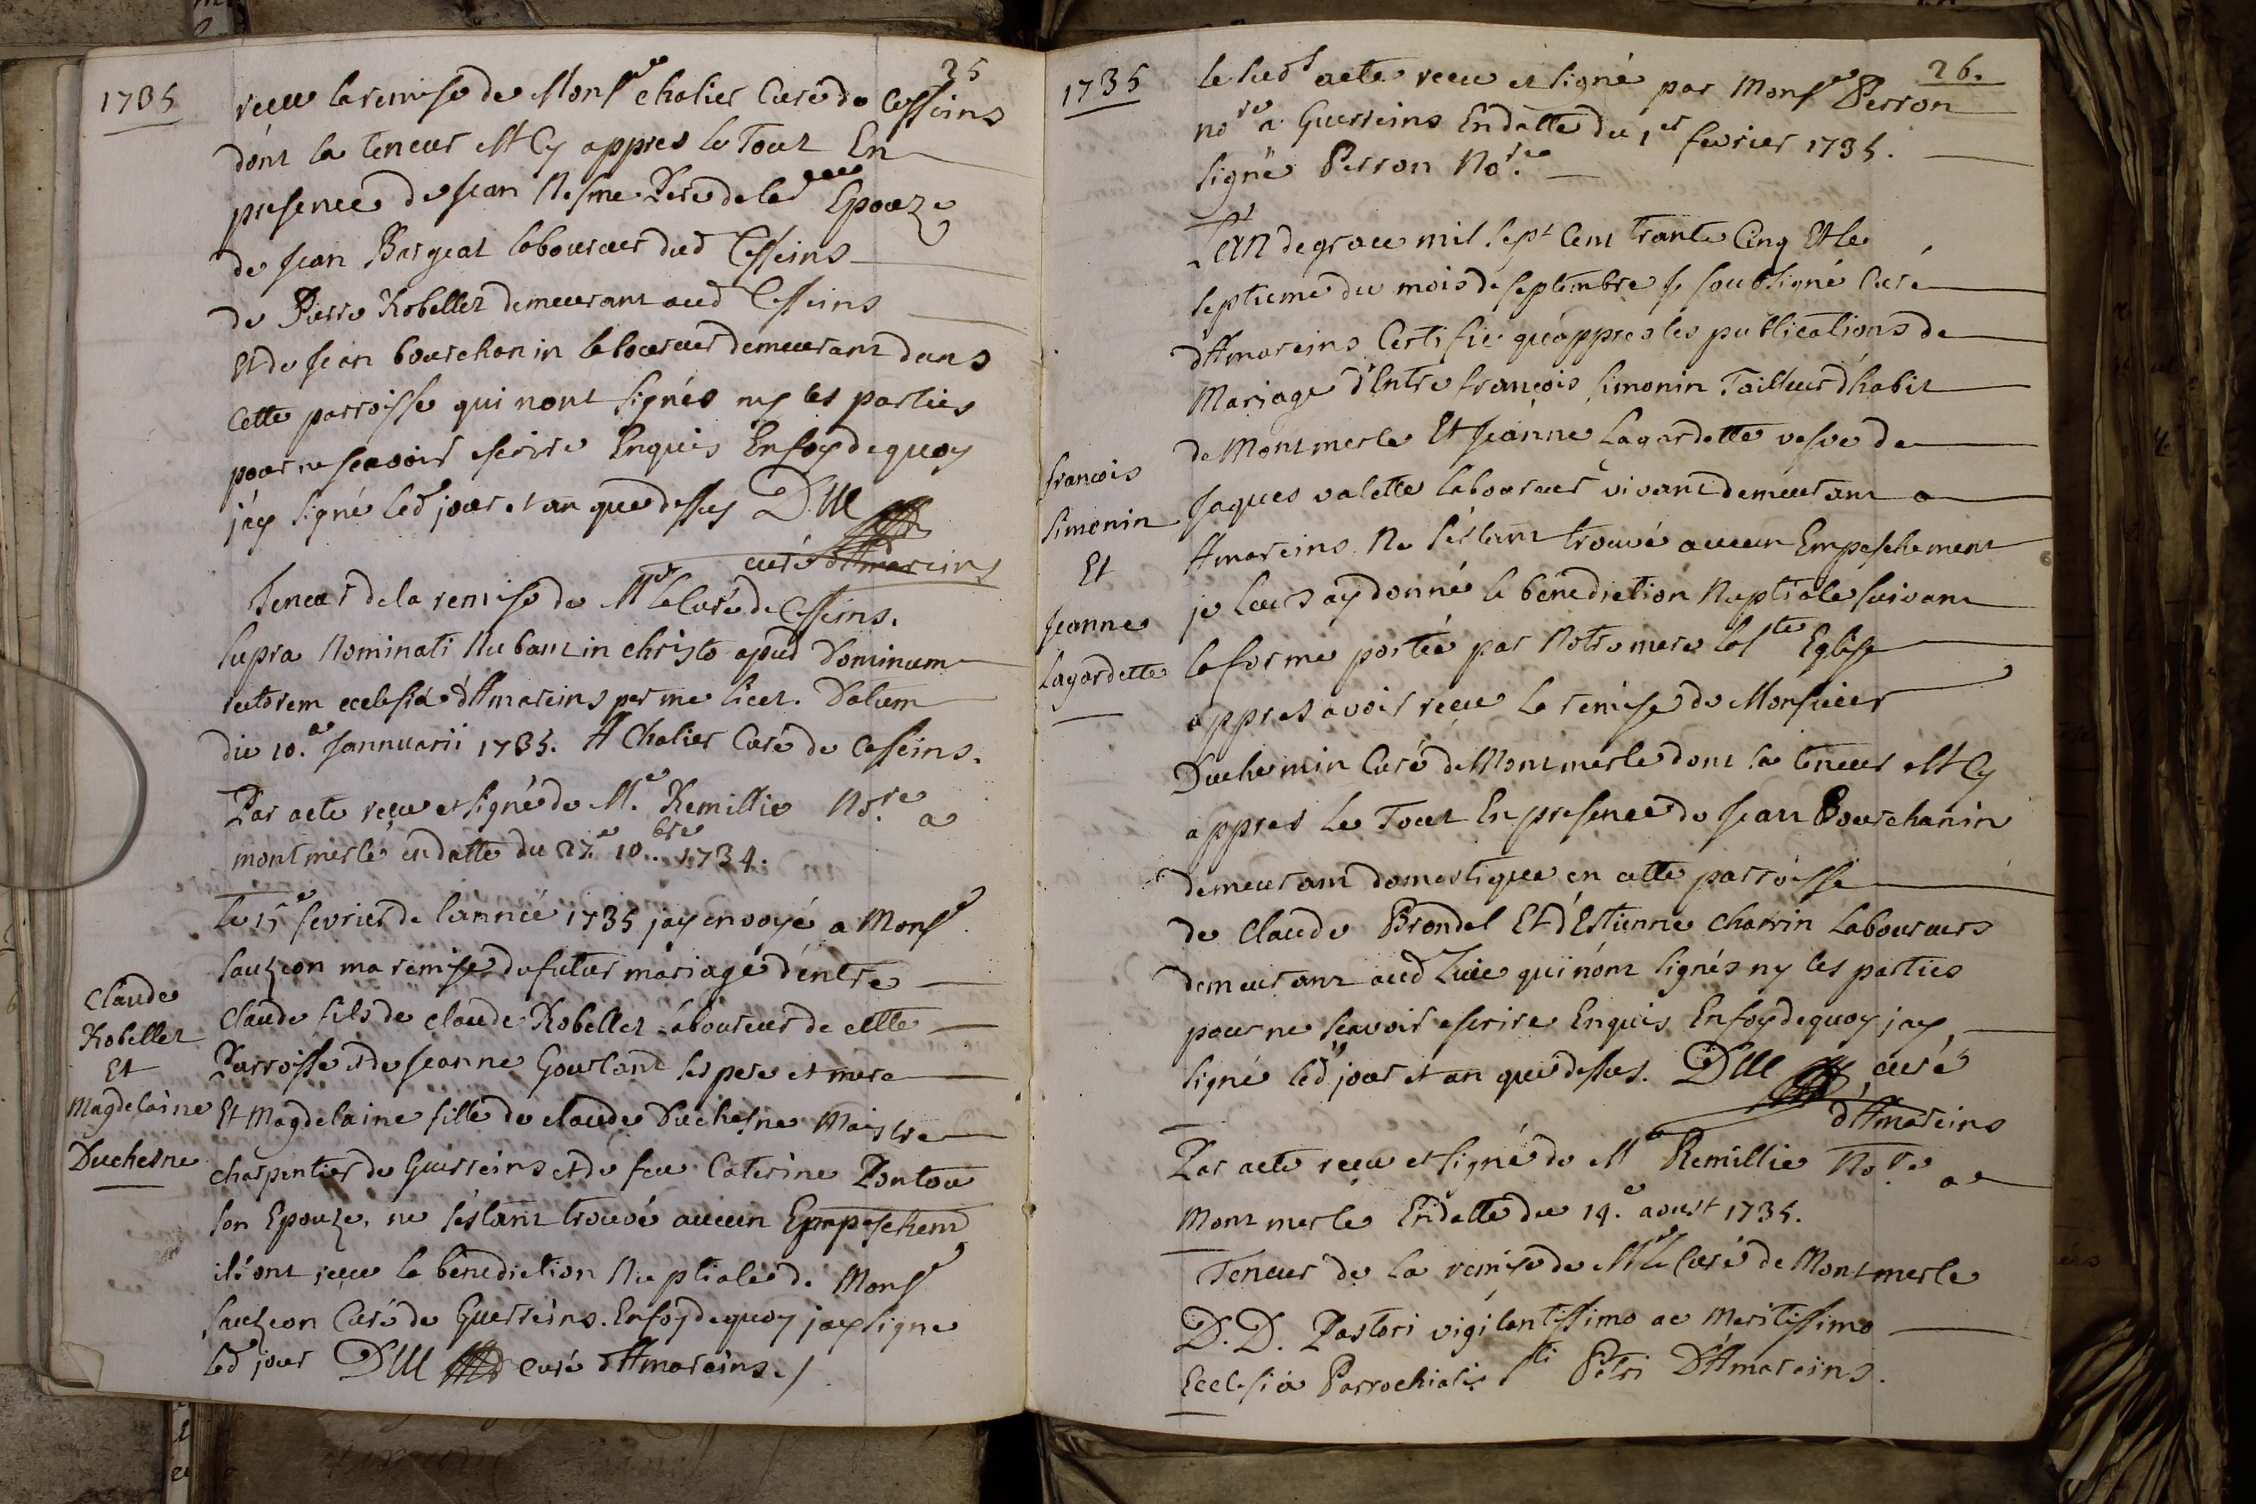 1735
25
receu la remise de Monsr chalier Curé de Cesseins
dont la teneur est Cy appres le Tout En
presence de Jean Nesme Pere de lad Epouze
de Jean Bargeat laboureur dud Cesseins
de Pierre Robellet demeurant aud Cesseins
Et de Jean bourchanin laboureur demeurant dans
Cette parroisse qui nont signés ny les parties
pour ne scavoir escrire Enquis Enfoy de quoy
j'ay signé led jour et an que dessus
curé d'Amareins
Teneur de la remise de Mr le Curé de Cesseins.
Supra Nominati Nubant in christo apud Dominum
rectorem ecclesiæ d'Amareins per me licet. Datum
die 10.a Jannuarii 1735. A Chalier Curé de Cesseins.
Par acte receu et signé de Me. Remillie No.re a
montmerle en datte du 27.e 10.bre 1734.
le 15e fevrier de lannée 1735 jay envoyé a Monsr
Sauzeon ma remise du futur mariage d'entre
Claude fils de claude Robellet laboureur de cette
Parroisse et de Jeanne Gourland ses pere et mere
Et Magdelaine fille de claude Duchesne Maistre
charpentier de Guerreins et de feu Caterine Pontou
son Epouze, ne s'estant trouvé aucun Empeschemt
ils ont receu la benediction Nuptiale de Monsr
Sauzeon Curé de Guerreins. Enfoy de quoy jay signe
led jour curé d'Amareins./
Claude
Robellet
Et
Magdelaine
Duchesne
1735
26.
le sudt acte receu et signé par Monsr Perron
nore a Guerreins En datte du 1er fevrier 1735.
signé Perron No.re
L'an de grace mil sept Cent trante Cinq Et le
septieme du mois de septembre Je soubsigné Curé
d'Amareins Certifie qu'appres les publications de
Mariage d'Entre françois simonin Tailleur d'habit
de Montmerle Et Jeanne Lagardette vesve de
Jaques valette laboureur vivant demeurant a
Amareins Ne s'estant trouvé aucun Empeschement
je leurs ay donné la benediction Nuptiale suivant
la forme portée par Notre mere la Ste Eglise
appres avoir receu la remise de Monsieur
Duchemin Curé de Montmerle dont la teneur est Cy
appres Le Tout En presence de Jean Bourchanin
demeurant domestique en cette parroisse
de claude Brondel Et d'Estienne charrin Laboureurs
demeurant aud Lieu qui nont signés ny les parties
pour ne scavoir escrire Enquis Enfoy de quoy jay
signé led jour et an que dessus. curé
d'Amareins
Par acte receu et signé de Me Remillie No.re a
Montmerle En datte du 14.e aoust 1735.
Teneur de la remise de Mr le Curé de Montmerle
D. D. Pastori vigilantissimo ac meritissimo
Ecclesiæ Parrochialis Sti Petri D'Amareins.
françois
simonin
Et
Jeanne
Lagardette